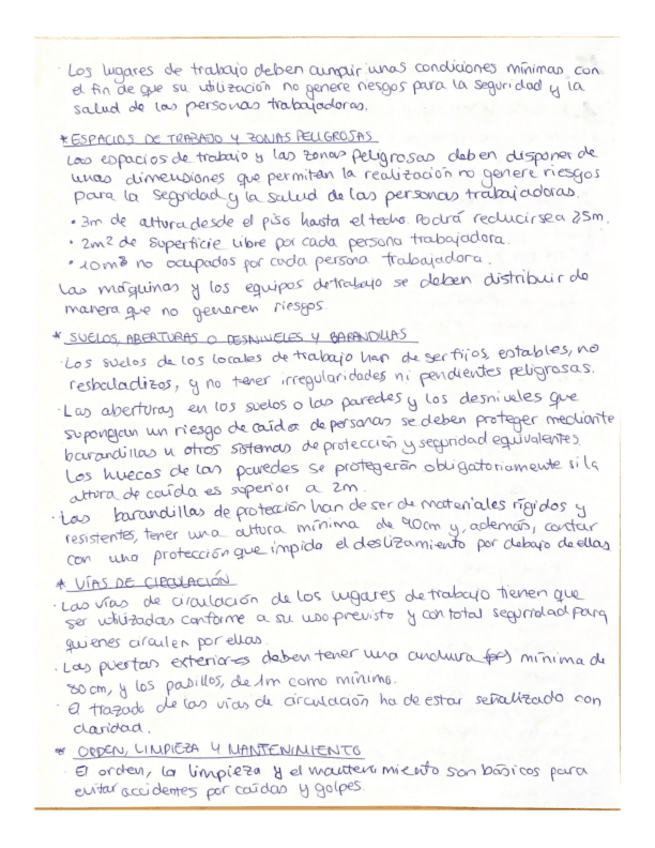 · Los lugares de trabajo deben cumplir unas condiciones mínimas con
el fin de que su utilización no genere riesgos para la seguridad y la
salud de las personas trabajadoras.
* ESPACIOS DE TRABAJO Y ZONAS PELIGROSAS
Los espacios de trabajo y las zonas Peligrosas deben disponer de
unas dimensiones que permitan la realización no genere riesgos
para la Seguridad y la salud de las personas trabajadoras.
· 3m de altura desde el piso hasta el techo. Podrá reducirse a 2'5m.
· 2m² de superficie libre por cada persona trabajadora.
· 10m³ no ocupados por cada persona trabajadora.
Las máquinas y los equipos de trabajo se deben distribuir de
manera que no generen riesgos.
* SUELOS, ABERTURAS O DESNIVELES Y BARANDILLAS
· Los suelos de los locales de trabajo han de ser fijos, estables, no
resbaladizos, y no tener irregularidades ni pendientes peligrosas.
· Las aberturas en los suelos o las paredes y los desniveles que
supongan un riesgo de caída de personas se deben proteger mediante
barandillas u otros sistemas de protección y seguridad equivalentes.
Los huecos de las paredes se protegerán obligatoriamente si la
altura de caída es superior a 2m.
· Las barandillas de protección han de ser de materiales rígidos y
resistentes, tener una altura mínima de 90cm y, además, contar
con una protección que impida el deslizamiento por debajo de ellas
* VÍAS DE CIRCULACIÓN
· Las vías de circulación de los lugares de trabajo tienen que
ser utilizadas conforme a su uso previsto y con total seguridad para
quienes circulen por ellas.
· Las puertas exteriores deben tener una anchura mínima de
80cm, y los pasillos, de 1m como mínimo.
· El trazado de las vías de circulación ha de estar señalizado con
claridad.
* ORDEN, LIMPIEZA Y MANTENIMIENTO
· El orden, la limpieza y el mantenimiento son básicos para
evitar accidentes por caídas y golpes.